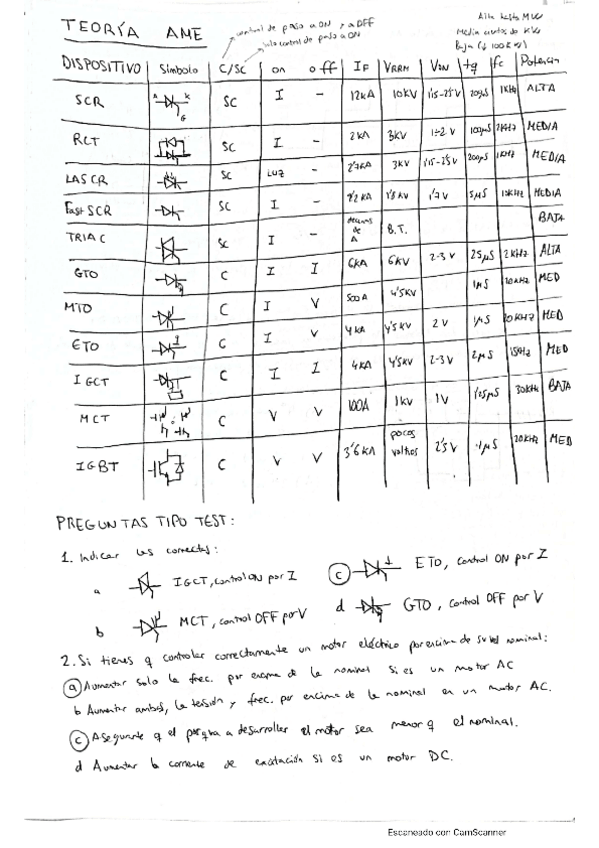 TEORÍA AME
control de paso a ON y a OFF
solo control de paso a ON
Alta hasta MW
Media cientos de KW
Baja (↓ 100 KW)
DISPOSITIVO Símbolo C/SC on off IF VRRM VON tq fc Potencia
SCR A K G SC I - 12kA 10KV 1'15-2'5V 20µS 1KHz ALTA
RCT SC I - 2kA 3KV 1÷2 V 100µS 2KHz MEDIA
LASCR SC LUZ - 2'7kA 3KV 1'15-2'5V 200µS 1KHz MEDIA
Fast SCR SC I - 2kA 1'8KV 1'7V 5µS 10KHz MEDIA
TRIAC SC I - decenas de A B.T. BAJA
GTO C I I 6kA 6KV 2-3 V 25µS 2KHz ALTA
MTO C I V 500A 4'5KV 1µS 20KHz MED
ETO C I V 4kA 4'5KV 2V 1µS 20KHz MED
IGCT C I I 4kA 4'5KV 2-3V 2µS 15KHz MED
MCT C V V 100A 1KV 1V 1'25µS 30KHz BAJA
IGBT C V V 3'6KA pocos voltios 2'5V 1µS 20KHz MED
PREGUNTAS TIPO TEST:
1. Indicar las correctas:
a IGCT, control ON por I
b MCT, control OFF por V
c ETO, control ON por I
d GTO, control OFF por V
2. Si tienes q controlar correctamente un motor eléctrico por encima de su vel nominal:
a Aumentar solo la frec. por encima de la nominal si es un motor AC
b Aumentar ambos, la tensión y frec. por encima de la nominal en un motor AC.
c Asegurarte q el par q va a desarrollar el motor sea menor q el nominal.
d Aumentar la corriente de excitación si es un motor DC.
Escaneado con CamScanner